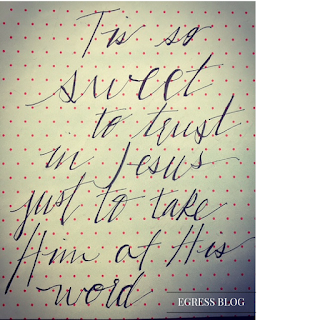 Tis so
sweet
to trust
in Jesus
just to take
Him at His
word
EGRESS BLOG